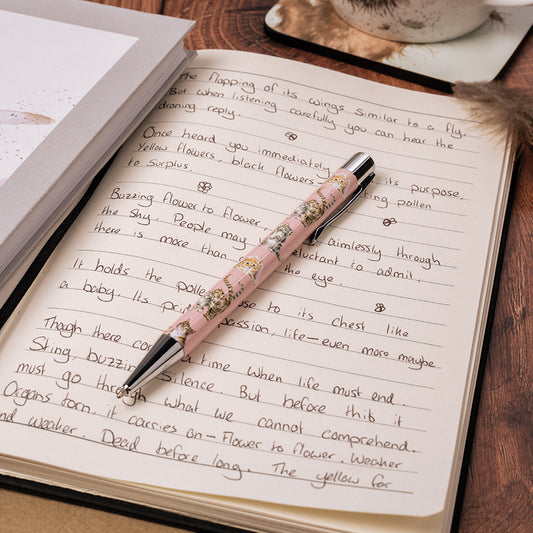 The flapping of its wings similar to a fly.
But when listening carefully you can hear the
droning reply.
Once heard you immediately its purpose,
Yellow flowers, black flowers pollen
to Surplus.
Buzzing flower to flower, aimlessly through
the sky. People may reluctant to admit,
there is more than the eye.
It holds the polle to its chest like
a baby. Its pri passion, life-even more maybe.
Thogh there co a time when life must end.
Sting, buzzing Silence. But before this it
must go through what we cannot comprehend.
Organs torn, it carries on - Flower to flower. Weaker
and weaker. Dead before long. The yellow for